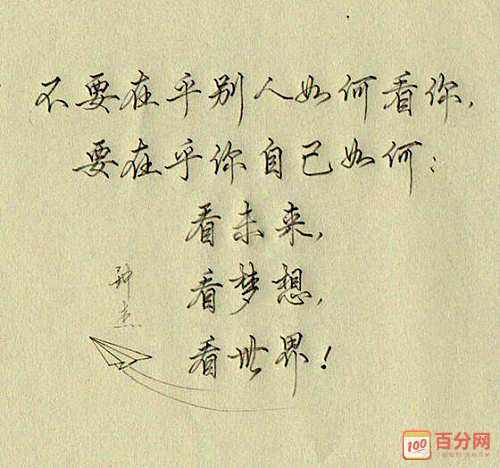 不要在乎别人如何看你,
要在乎你自己如何:
看未来,
看梦想,
看世界!
钟杰
100
百分网